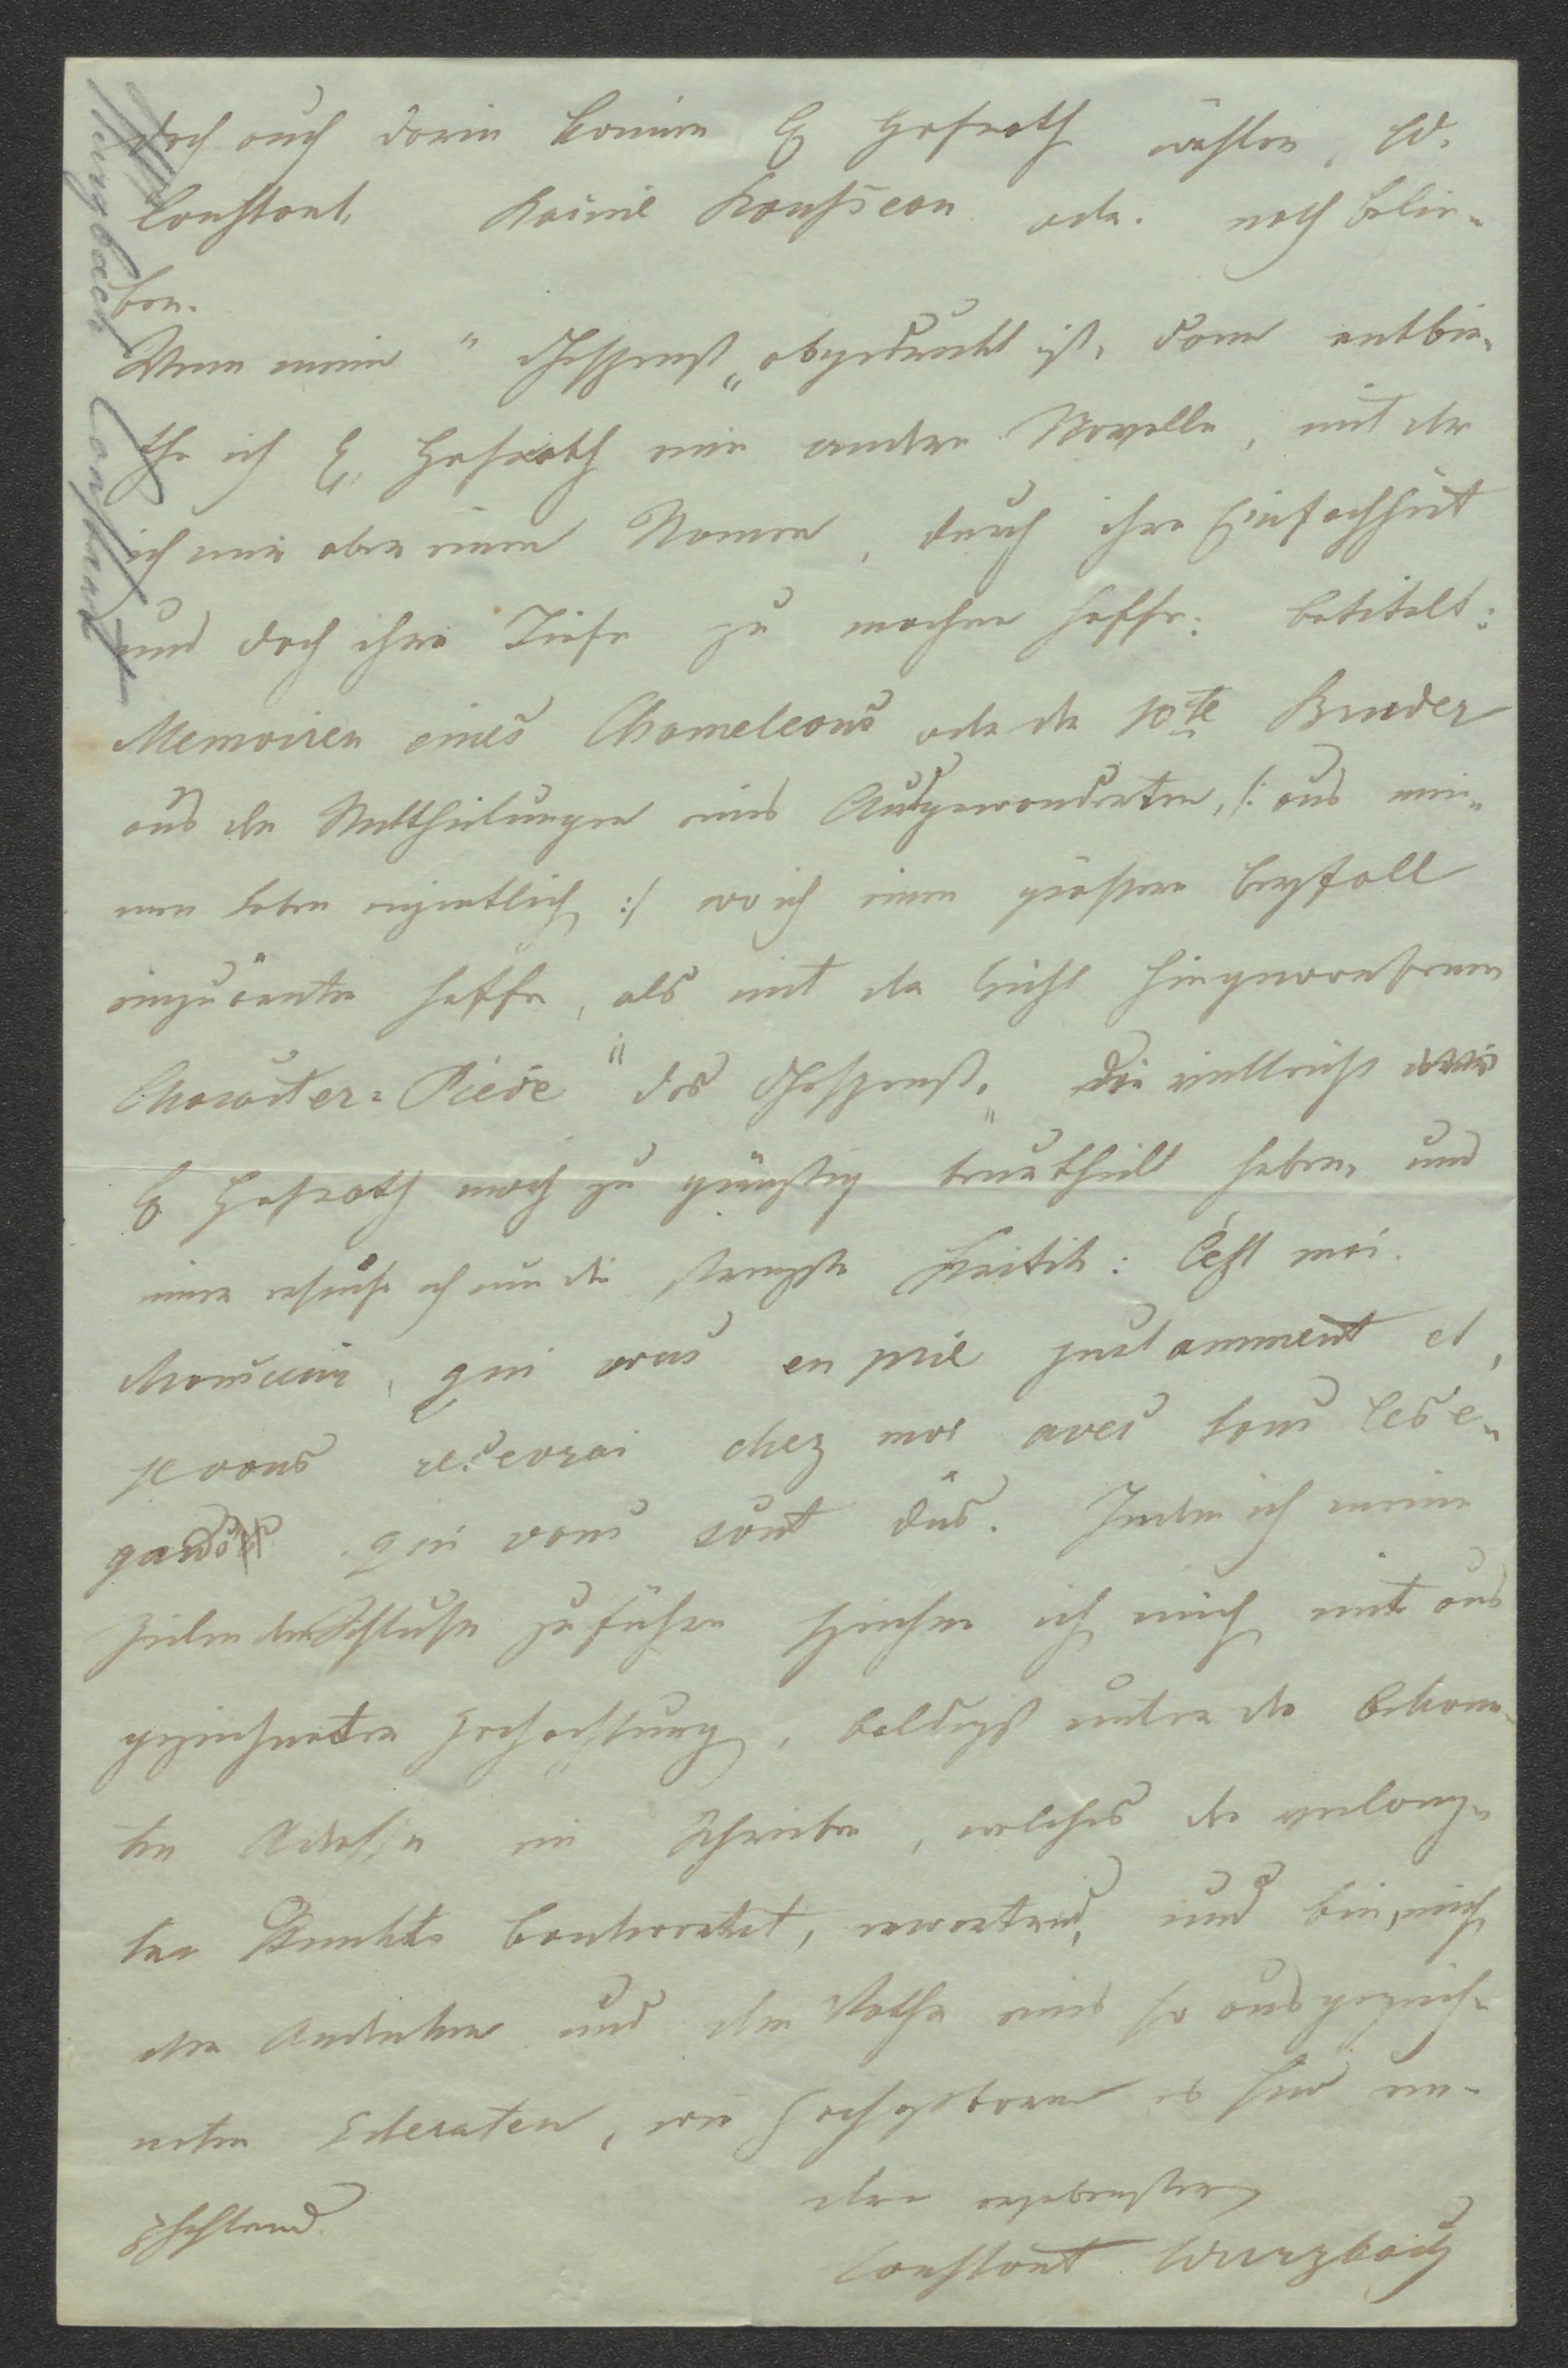 doch auch darin können E Hofrath wählen, W.
Constant. oder. nach belie-
ben.
Wenn mein " Gespenst „ abgedruckt ist, dann entbie-
the ich E. Hofrath eine andere Novelle, mit der
ich mir aber einen Namen, durch ihre Einfachheit
und doch ihre Tiefe zu machen hoffe: betitelt:
Memoiren eines Chameleons oder der 10te Bruder
aus den Mittheilungen eines Ausgewanderten, /: aus mei-
nem Leben eigentlich :/ wo ich einen größeren Beyfall
einzuärnten hoffe, als mit der leicht hingeworfenen
Character-Piece " das Gespenst „ die vielleicht
E Hofrath noch zu günstig beurtheilt haben, und
immer ersuche ich um die strengste Kritik: C'est moi.
Monsieur, qui vous en prie et
je vous recevrai chez moi avec tous les e-
gards qui vous sont dûs. Indem ich meine
Zeilen dem Schluße zuführe zeichne ich mich mit aus
gezeichneter Hochachtung, baldigst unter der bekann-
ten Adresse ein Schreiben, welches die verlang-
ten Punkte beantwortet, erwartend, und bin, mich
dem Andenken und dem Rathe eines so ausgezeich-
neten Literaten, wie Hochgeboren es sind em-
pfehlend
dero ergebenster
Constant Wurzbach
Wurzbach Constant